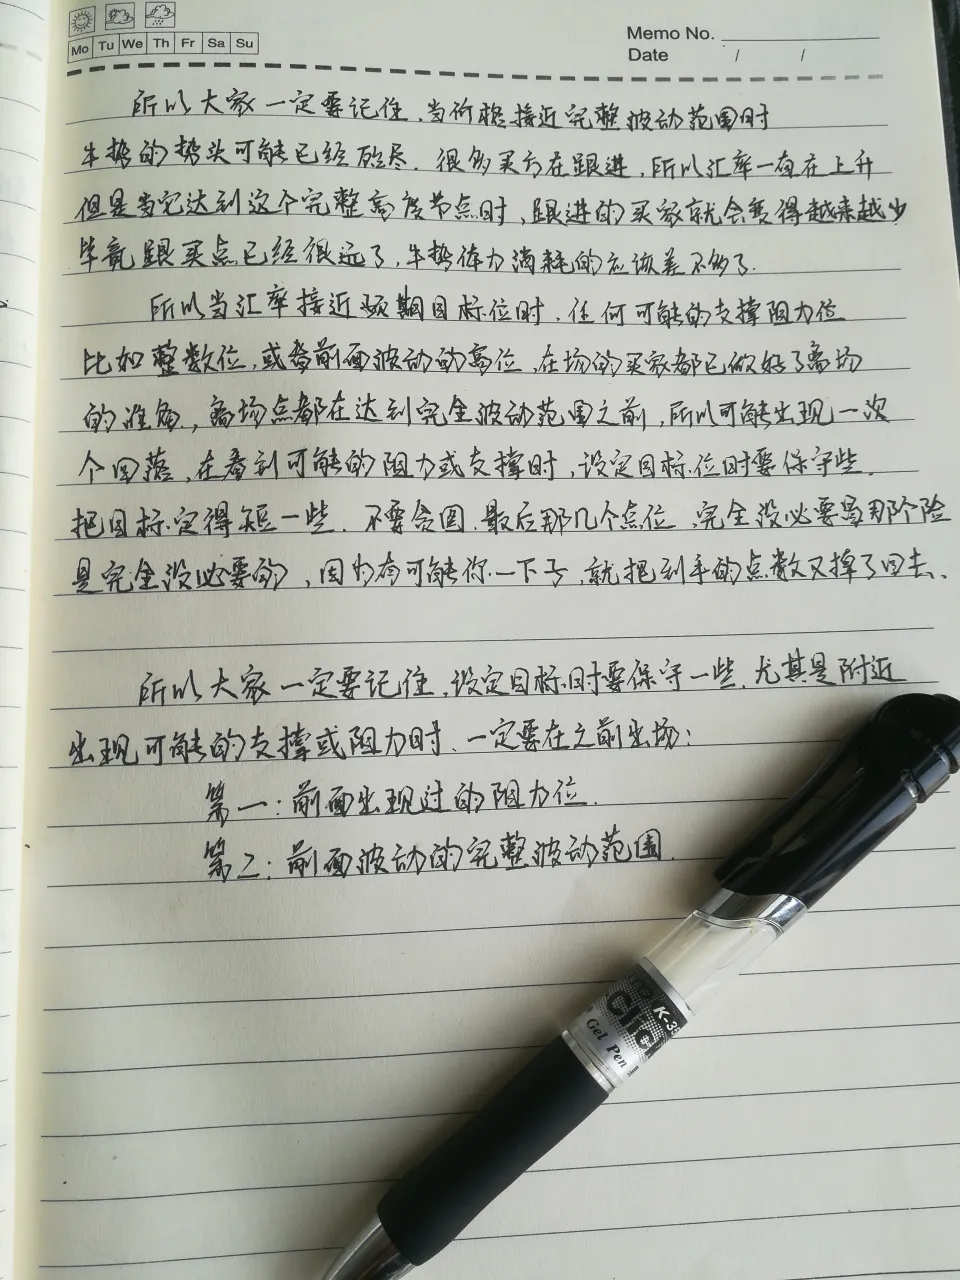 Memo No.
Mo Tu We Th Fr Sa Su
Date / /
所以大家一定要记住,当价格接近完整波动范围时
牛势的势头可能已经殆尽.很多买方在跟进,所以汇率一直在上升
但是当它达到这个完整高度节点时,跟进的买家就会变得越来越少
毕竟跟买点已经很远了,牛势体力消耗的应该差不多了.
所以当汇率接近预期目标位时.任何可能的支撑阻力位
比如整数位,或者前面波动的高位,在场的买家都已做好了离场
的准备,离场点都在达到完全波动范围之前,所以可能出现一次
个回落,在看到可能的阻力或支撑时,设定目标位时要保守些.
把目标定得短一些.不要贪图最后那几个点位,完全没必要冒那个险
是完全没必要的,因为有可能你一下子,就把到手的点数又掉了回去、
所以大家一定要记住,设定目标时要保守一些.尤其是附近
出现可能的支撑或阻力时、一定要在之前出场:
第一:前面出现过的阻力位.
第二:前面波动的完整波动范围.
K-35
Gel Pen